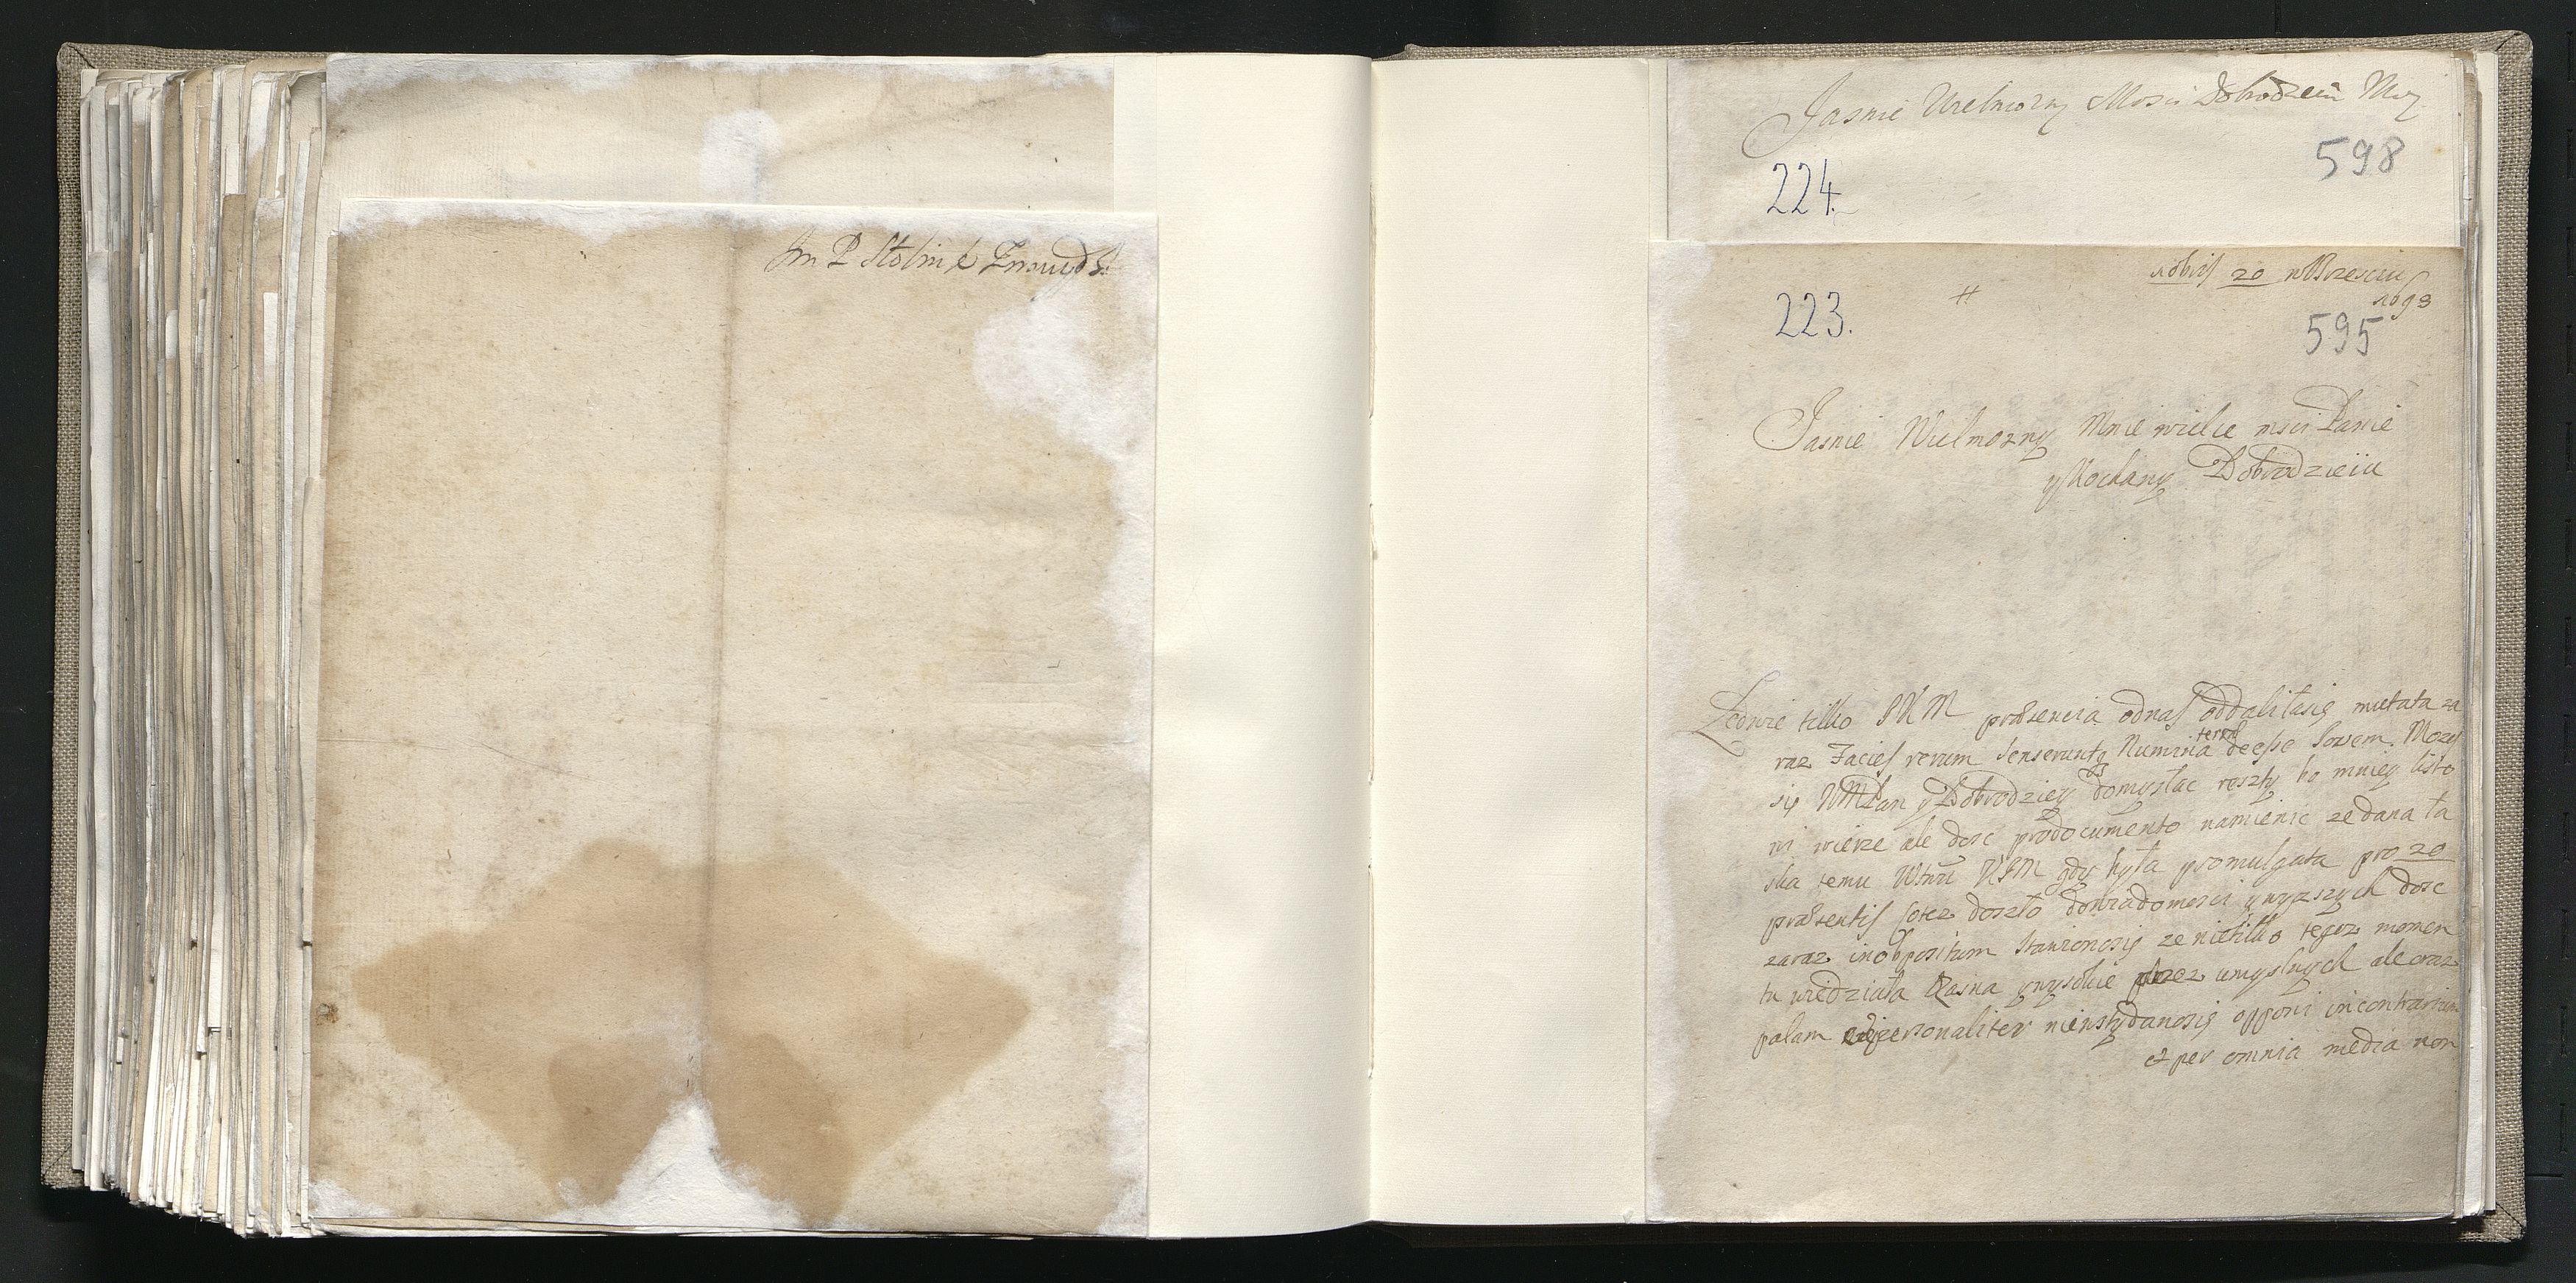 Im P Stolnik Zmuydz.
Jasnie Wielmozny Mosci Dobrodzeiu Moy
598
224.
xobris 20 w Brzesciu
1693
223.
#
595
Jasnie Wielmozny Mnie wielce msci Panie
y Kochany Dobrodzieiu
Ledwie tilko JKM præsencia odnas oddaliłasię mutata za
raz Facies rerum senseruntq Numina deesse sovem. Mozesz
się WMPan y Dobrodziey domyslac reszty bo mniey listo
wi wierze ale dosc prodocumento namienic ze dana ła
ska temu JKM gdy była promulgata pro 20
præsentis sotez doszło dowiadomosci ywyzszych dosc
zaraz inoppositum stawionosię ze nietilko tegoz momen
tu wiedziała Rasna ywysokie przez umyslnych ale oraz
palam personaliter niewstydanosię opponi incontrarium
et per omnia media non